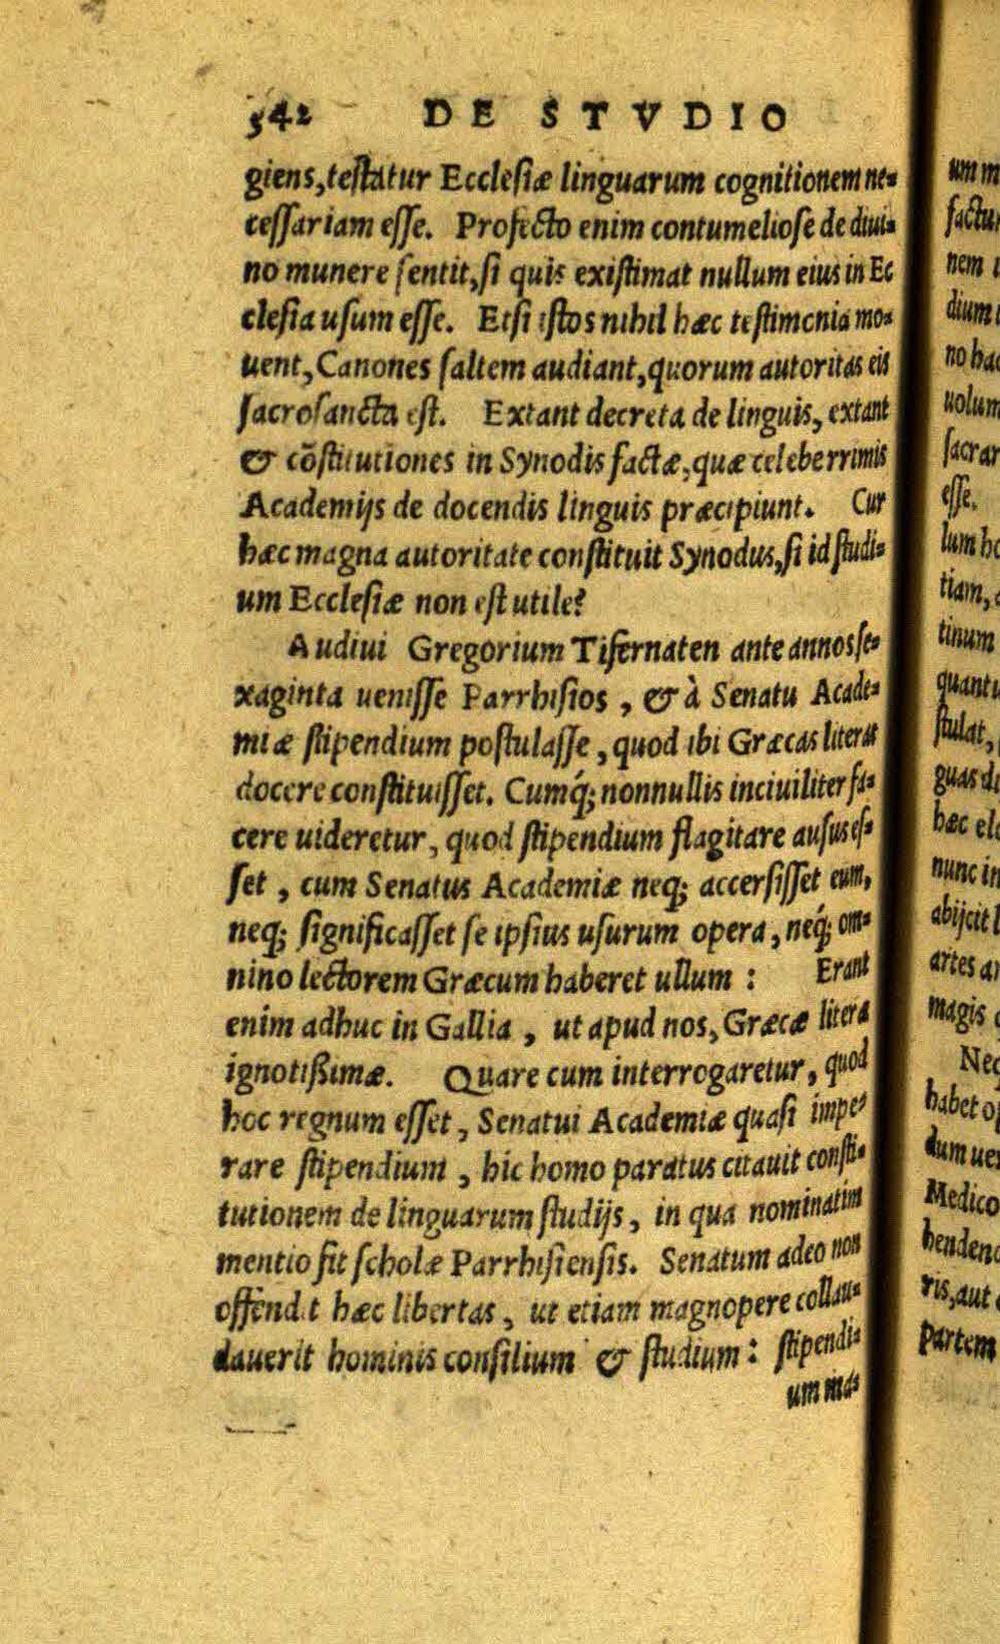 542 DE STVDIO
giens,teſtatur Eccleſiæ linguarum cognitionem ne⸗
ceſſariam eſſe. Profecto enim contumelioſe de diui⸗
no munere ſentit,ſi quis exiſtimat nullum eius in Ec
cleſia uſum eſſe. Etſi iſtos nihil hæc teſtimonia mo⸗
uent,Canones ſaltem audiant,quorum autoritas eis
ſacroſancta eſt. Extant decreta de linguis, extant
& cõſtitutiones in Synodis factæ,quæ celeberrimis
Academijs de docendis linguis præcipiunt. Cur
hæc magna autoritate conſtituit Synodus,ſi id ſtudi⸗
um Eccleſiæ non eſt utile?
Audiui Gregorium Tifernaten ante annos ſe⸗
xaginta ueniſſe Parrhiſios , & à Senatu Acade⸗
miæ ſtipendium poſtulaſſe , quod ibi Græcas literas
docere conſtituiſſet. Cumq́; nonnullis inciuiliter fa⸗
cere uideretur, quod ſtipendium flagitare auſus eſ⸗
ſet , cum Senatus Academiæ neq; accerſiſſet eum,
neq; ſignificaſſet ſe ipſius uſurum opera , neq́; om⸗
nino lectorem Græcum haberet ullum : Erant
enim adhuc in Gallia , ut apud nos, Græcæ literæ
ignotißimæ. Quare cum interrogaretur, quod
hoc regnum eſſet, Senatui Academiæ quaſi impe⸗
rare ſtipendium , hic homo paratus citauit conſti⸗
tutionem de linguarum ſtudijs, in qua nominatim
mentio fit ſcholæ Parrhiſienſis. Senatum adeo non
offendit hæc libertas, ut etiam magnopere collau⸗
dauerit hominis conſilium & ſtudium : ſtipendi⸗
um mas
um m
factu
nem
dium
no hac
uolum
ſacrar
eſſe.
lum ho
tiam,
tinum
quant
ſtulat,
guas di
hæc el
nunc in
abijcit
artes a
magis
Nec
habet o
dum ue
Medico
hendenc
ris,aut
partem